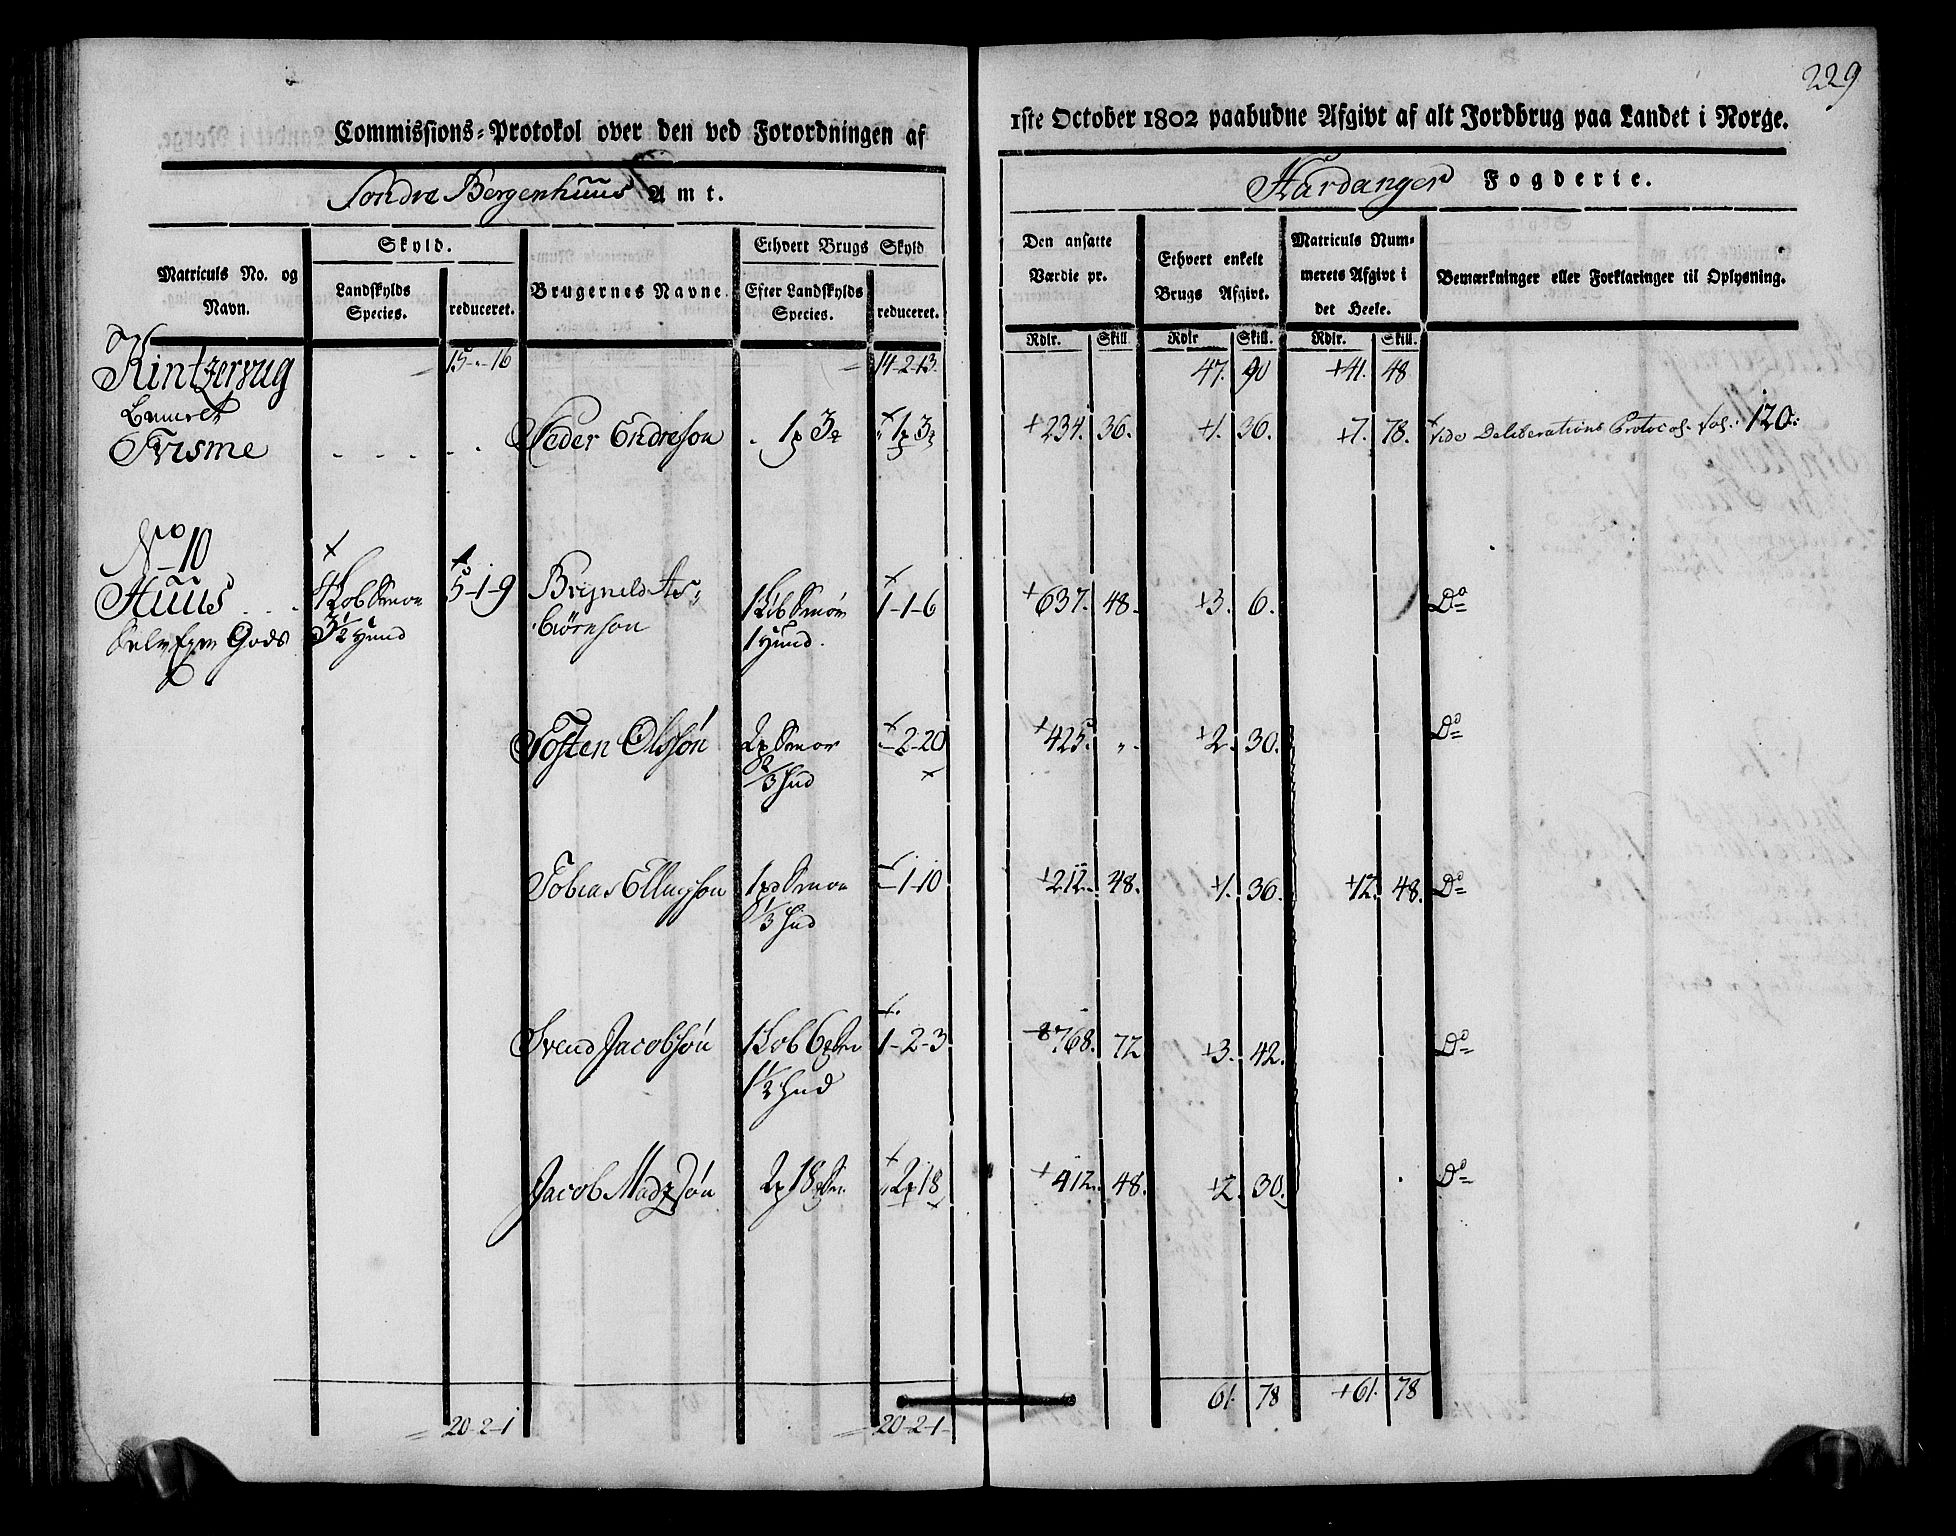 229
Commissions-Protokol over den ved Forordningen af
1ste October 1802 paabudne Afgivt af alt Jordbrug paa Landet i Norge.
Søndre Bergenhuus Amt.
Hardanger Fogderie.
Matriculs No. og Navn.
Skyld.
Landskylds Species.
reduceret.
Brugernes Navne.
Ethvert Brugs Skyld
Efter Landskylds Species.
reduceret.
Den ansatte Værdie pr.
Ethvert enkelt Brugs Afgivt.
Matriculs Nummerets Afgivt i det Heele.
Bemærkninger eller Forklaringer til Oplysning.
Rdlr. Skill. Rdlr Skill. Rdlr. Skill.
15 - 16 14-2-13 47. 90 +41. 48
Peder Endreson 1 3 1 3 +234. 36. +1. 36. +7. 78. vide Deliberations Protocol. fol. 120.
No 10
Huus 5-1-9 Brynild As- 1-1-6 +637. 48. +3. 6. Do
Selv Eyer Gods 3½ Huud biørnson 1 Huud.
Tosten Olssøn 2 Smør -2-20 +425. „. +2. 30. Do
2/3 Hud
Tobias Ellingson 1 Smør -1-10 +212. 48. +1. 36. +12. 48. Do
1/3 Hud
Svend Jacobsøn 1-2-3 768. 72 +3. 42. Do
1½ Hud
Jacob Madzsøn 2 18 2 18 +412. 48. +2. 30. Do
61. 78 +61. 78
20-2-1 20-2-1